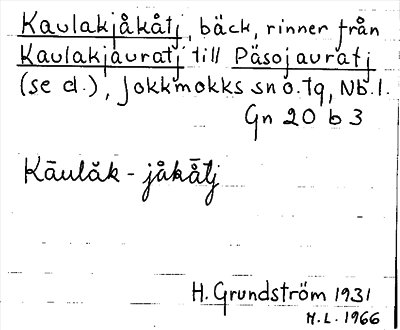 Kaulakjåkåtj, bäck, rinner från
Kaulakjauratj till Päsojauratj
(se d.), Jokkmokks sn o. tg, Nb. l.
Gn 20 b 3
Kāulăk - jåkåtj
H. Grundström 1931
H.L. 1966